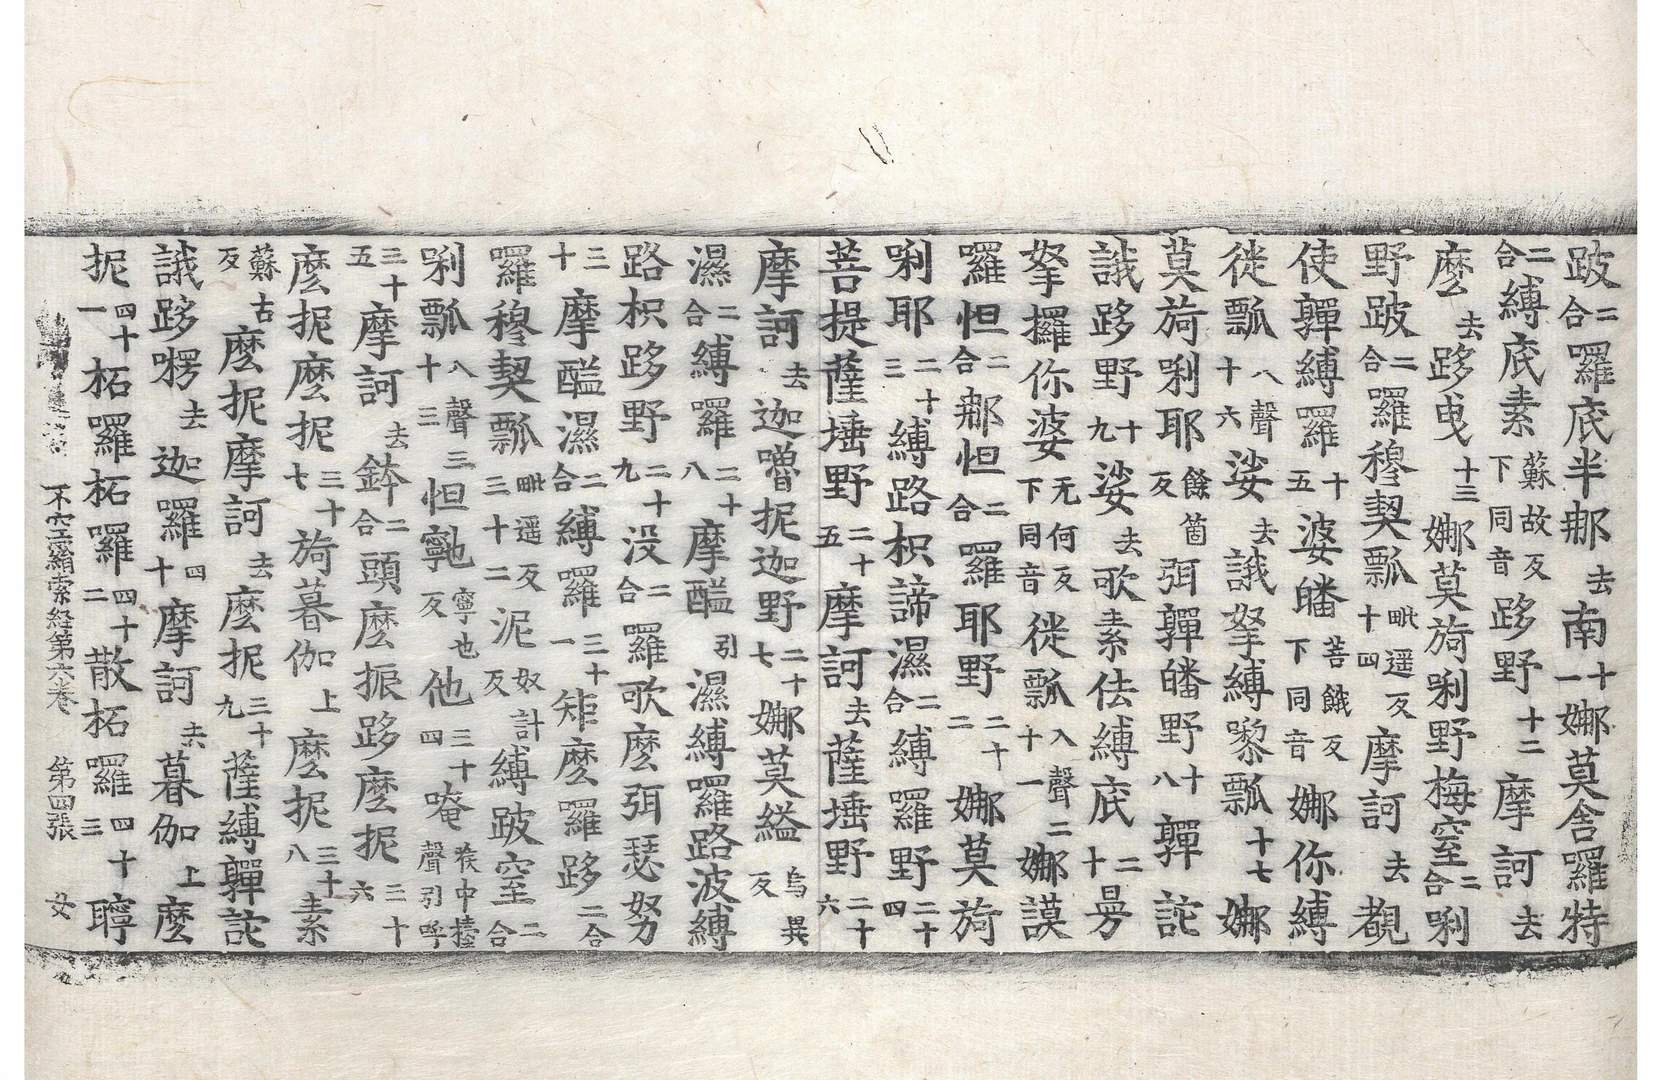 跛二合囉底半那去南十一娜莫舍囉特
二合縛底素蘇故反下同音跢野十二摩訶去
麼去跢曳十三娜莫旖唎野梅窒二合唎
野跛二合囉穆契瓢毗遥反十四摩訶去覩
使嚲縛羅十五婆皤菩餓反下同音娜你縛
徙瓢八聲十六娑去誐拏縛嚟瓢十七娜
莫旖唎耶餘箇反弭嚲皤野十八嚲詑
誐跢野十九娑去歌素佉縛底二十曼
拏攞你婆无何反下同音徙瓢入聲二十一娜謨
囉怛二合那怛二合囉耶野二十二娜莫旖
唎耶二十三縛路枳諦濕二合縛羅野二十四
菩提薩埵野二十五摩訶去薩埵野二十六
摩訶去迦嚕抳迦野二十七娜莫縊烏異反
濕二合縛羅二十八摩醯引濕縛羅路波縛
路枳跢野二十九没二合囉歌麼弭瑟努
三十摩醯濕二合縛羅三十一矩麼羅跢二合
囉穆契瓢毗遥反三十二泥奴計反縛跛窒二合
唎瓢八聲三十三怛寧也反他三十四唵喉中擡聲引呼
三十五摩訶去鉢二合頭麼振跢麼抳三十六
麼抳麼抳三十七旖暮伽上麼抳三十八素
蘇古反麼抳摩訶去麼抳三十九薩縛嚲詑
誐跢㘄去迦囉四十摩訶去暮伽上麼
抳四十一柘囉柘囉四十二散柘羅四十三聹
不空羂索経第六卷 第四張 女